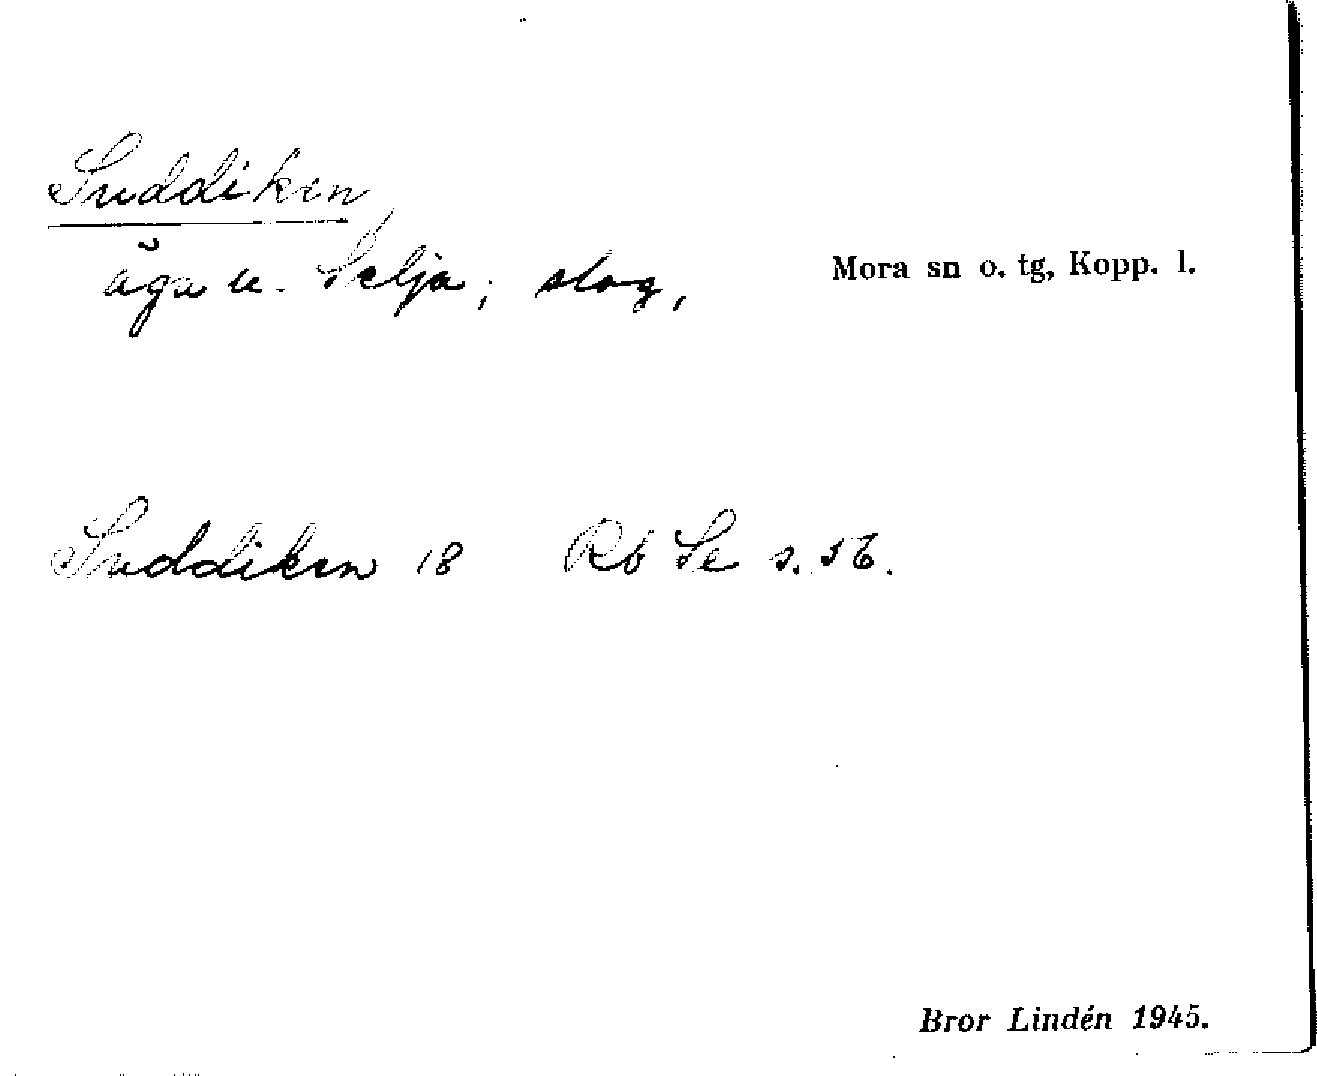 Suddiken
äga u. Selja; slog,
Mora sn o. tg, Kopp. l.
Suddiken 18 Rb Se s. 56.
Bror Lindén 1945.